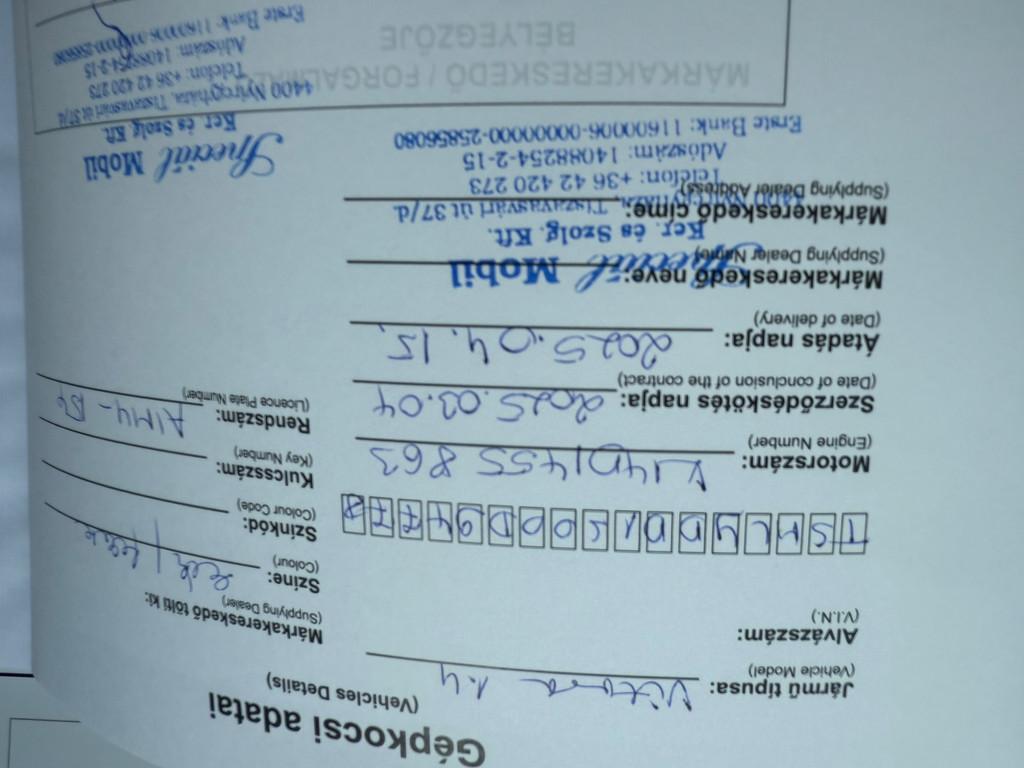 Gépkocsi adatai
(Vehicles Details)
Jármű típusa: Vitara 1.4
(Vehicle Model)
Alvázszám:
(V.I.N.)
Motorszám: K14D1455863
(Engine Number)
Szerződéskötés napja: 2025.03.04
(Date of conclusion of the contract)
Átadás napja: 2025.04.15.
(Date of delivery)
Márkakereskedő neve:
(Supplying Dealer Name)
Speciál Mobil
Ker. és Szolg. Kft.
Márkakereskedő címe:
(Supplying Dealer Address)
4400 Nyíregyháza, Tiszavasvári út 37/d.
Telefon: +36 42 420 273
Adószám: 14088254-2-15
Erste Bank: 11600006-00000000-25856080
Márkakereskedő tölti ki:
(Supplying Dealer)
Színe:
(Colour)
Színkód:
(Colour Code)
Kulcsszám:
(Key Number)
Rendszám:
(Licence Plate Number)
Speciál Mobil
Ker. és Szolg. Kft.
4400 Nyíregyháza, Tiszavasvári út 37/d.
Telefon: +36 42 420 273
Adószám: 14088254-2-15
Erste Bank:
MÁRKAKERESKEDŐ / FORGALMAZÓ
BÉLYEGZŐJE